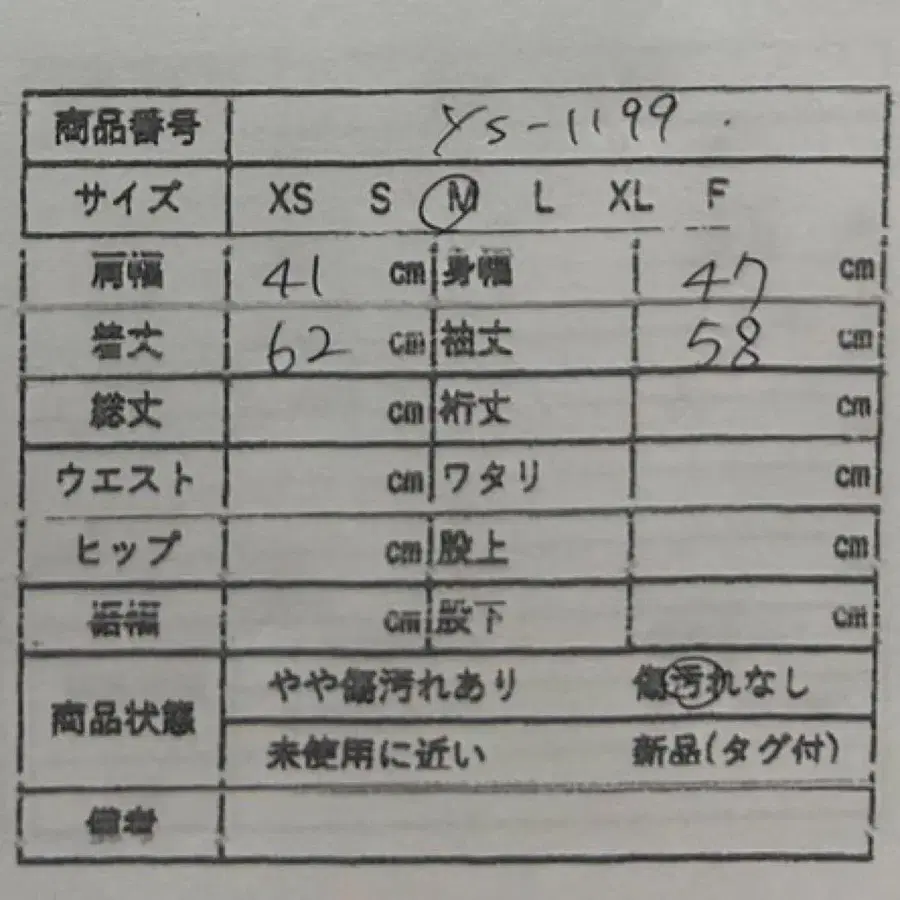 商品番号 ys-1199
サイズ XS S M L XL F
肩幅 41 cm 身幅 47 cm
着丈 62 cm 袖丈 58 cm
総丈 cm 裄丈 cm
ウエスト cm ワタリ cm
ヒップ cm 股上 cm
裾幅 cm 股下 cm
商品状態 やや傷汚れあり 傷汚れなし
未使用に近い 新品(タグ付)
備考